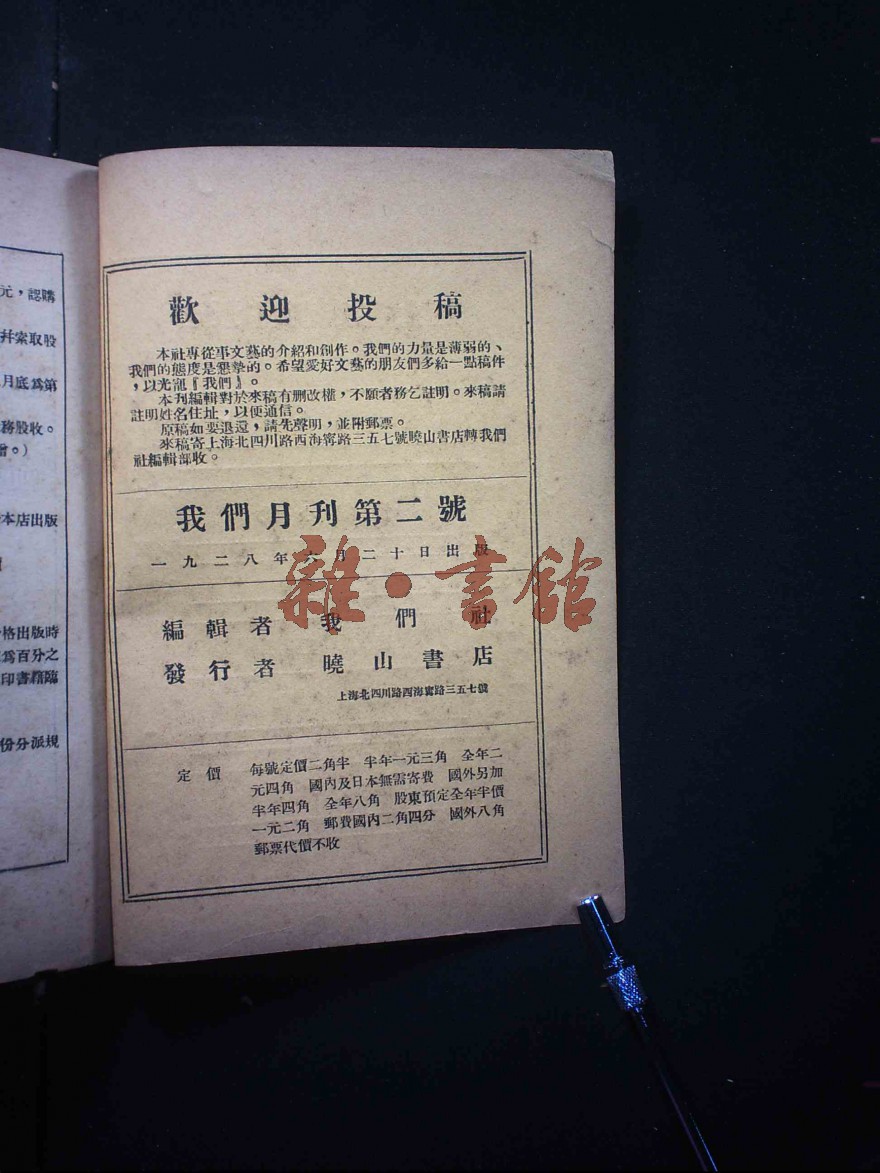 元，認購
幷索取股
月底爲第
務股收。
本店出版
格出版時
爲百分之
印書籍臨
份分派規
歡迎投稿
本社專從事文藝的介紹和創作。我們的力量是薄弱的、
我們的態度是懇摯的。希望愛好文藝的朋友們多給一點稿件
，以光寵『我們』。
本刊編輯對於來稿有刪改權，不願者務乞註明。來稿請
註明姓名住址，以便通信。
原稿如要退還，請先聲明，並附郵票。
來稿寄上海北四川路西海甯路三五七號曉山書店轉我們
社編輯部收。
我們月刊第二號
一九二八年六月二十日出版
雜·書館
編輯者 我們社
發行者 曉山書店
上海北四川路西海甯路三五七號
定價 每號定價二角半 半年一元三角 全年二
元四角 國內及日本無需寄費 國外另加
半年四角 全年八角 股東預定全年半價
一元二角 郵費國內二角四分 國外八角
郵票代價不收